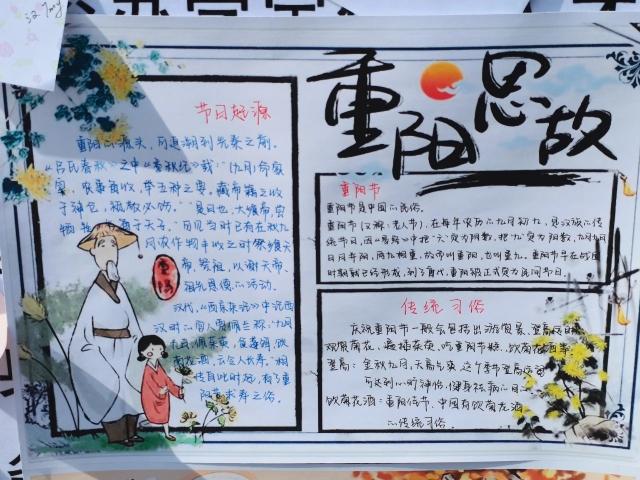 重阳思故
节日起源
重阳的源头，可追溯到先秦之前。
《吕氏春秋》之中《季秋纪》载：“（九月）命家
宰，农事备收，举五种之要。藏帝籍之收
于神仓，祗敬必饬。”是日也，大飨帝，尝
牺牲，告备于天子。”可见当时已有在秋九
月农作物丰收之时祭飨天
帝、祭祖，以谢天帝、
祖先恩德的活动。
汉代，《西京杂记》中记西
汉时的宫人贾佩兰称：“九月
九日，佩茱萸，食蓬饵，饮
菊花酒，云令人长寿。”相
传自此时起，有了重
阳节求寿之俗。
重阳
重阳节
重阳节是中国的民俗。
重阳节（又称：老人节），在每年农历的九月初九，是汉族的传
统节日，因《易经》中把“六”定为阴数，把“九”定为阳数，九月九日，
日月并阳，两九相重，故带叫重阳，也叫重九。重阳节早在战国
时期就已经形成，到了唐代，重阳被正式定为民间节日。
传统习俗
庆祝重阳节一般会包括出游赏景、登高远眺、
观赏菊花、遍插茱萸、吃重阳节糕、饮菊花酒等。
登高：金秋九月，天高气爽，这个季节登高远望
可达到心旷神怡、健身祛病的目的
饮菊花酒：重阳佳节，中国有饮菊花酒
的传统习俗。